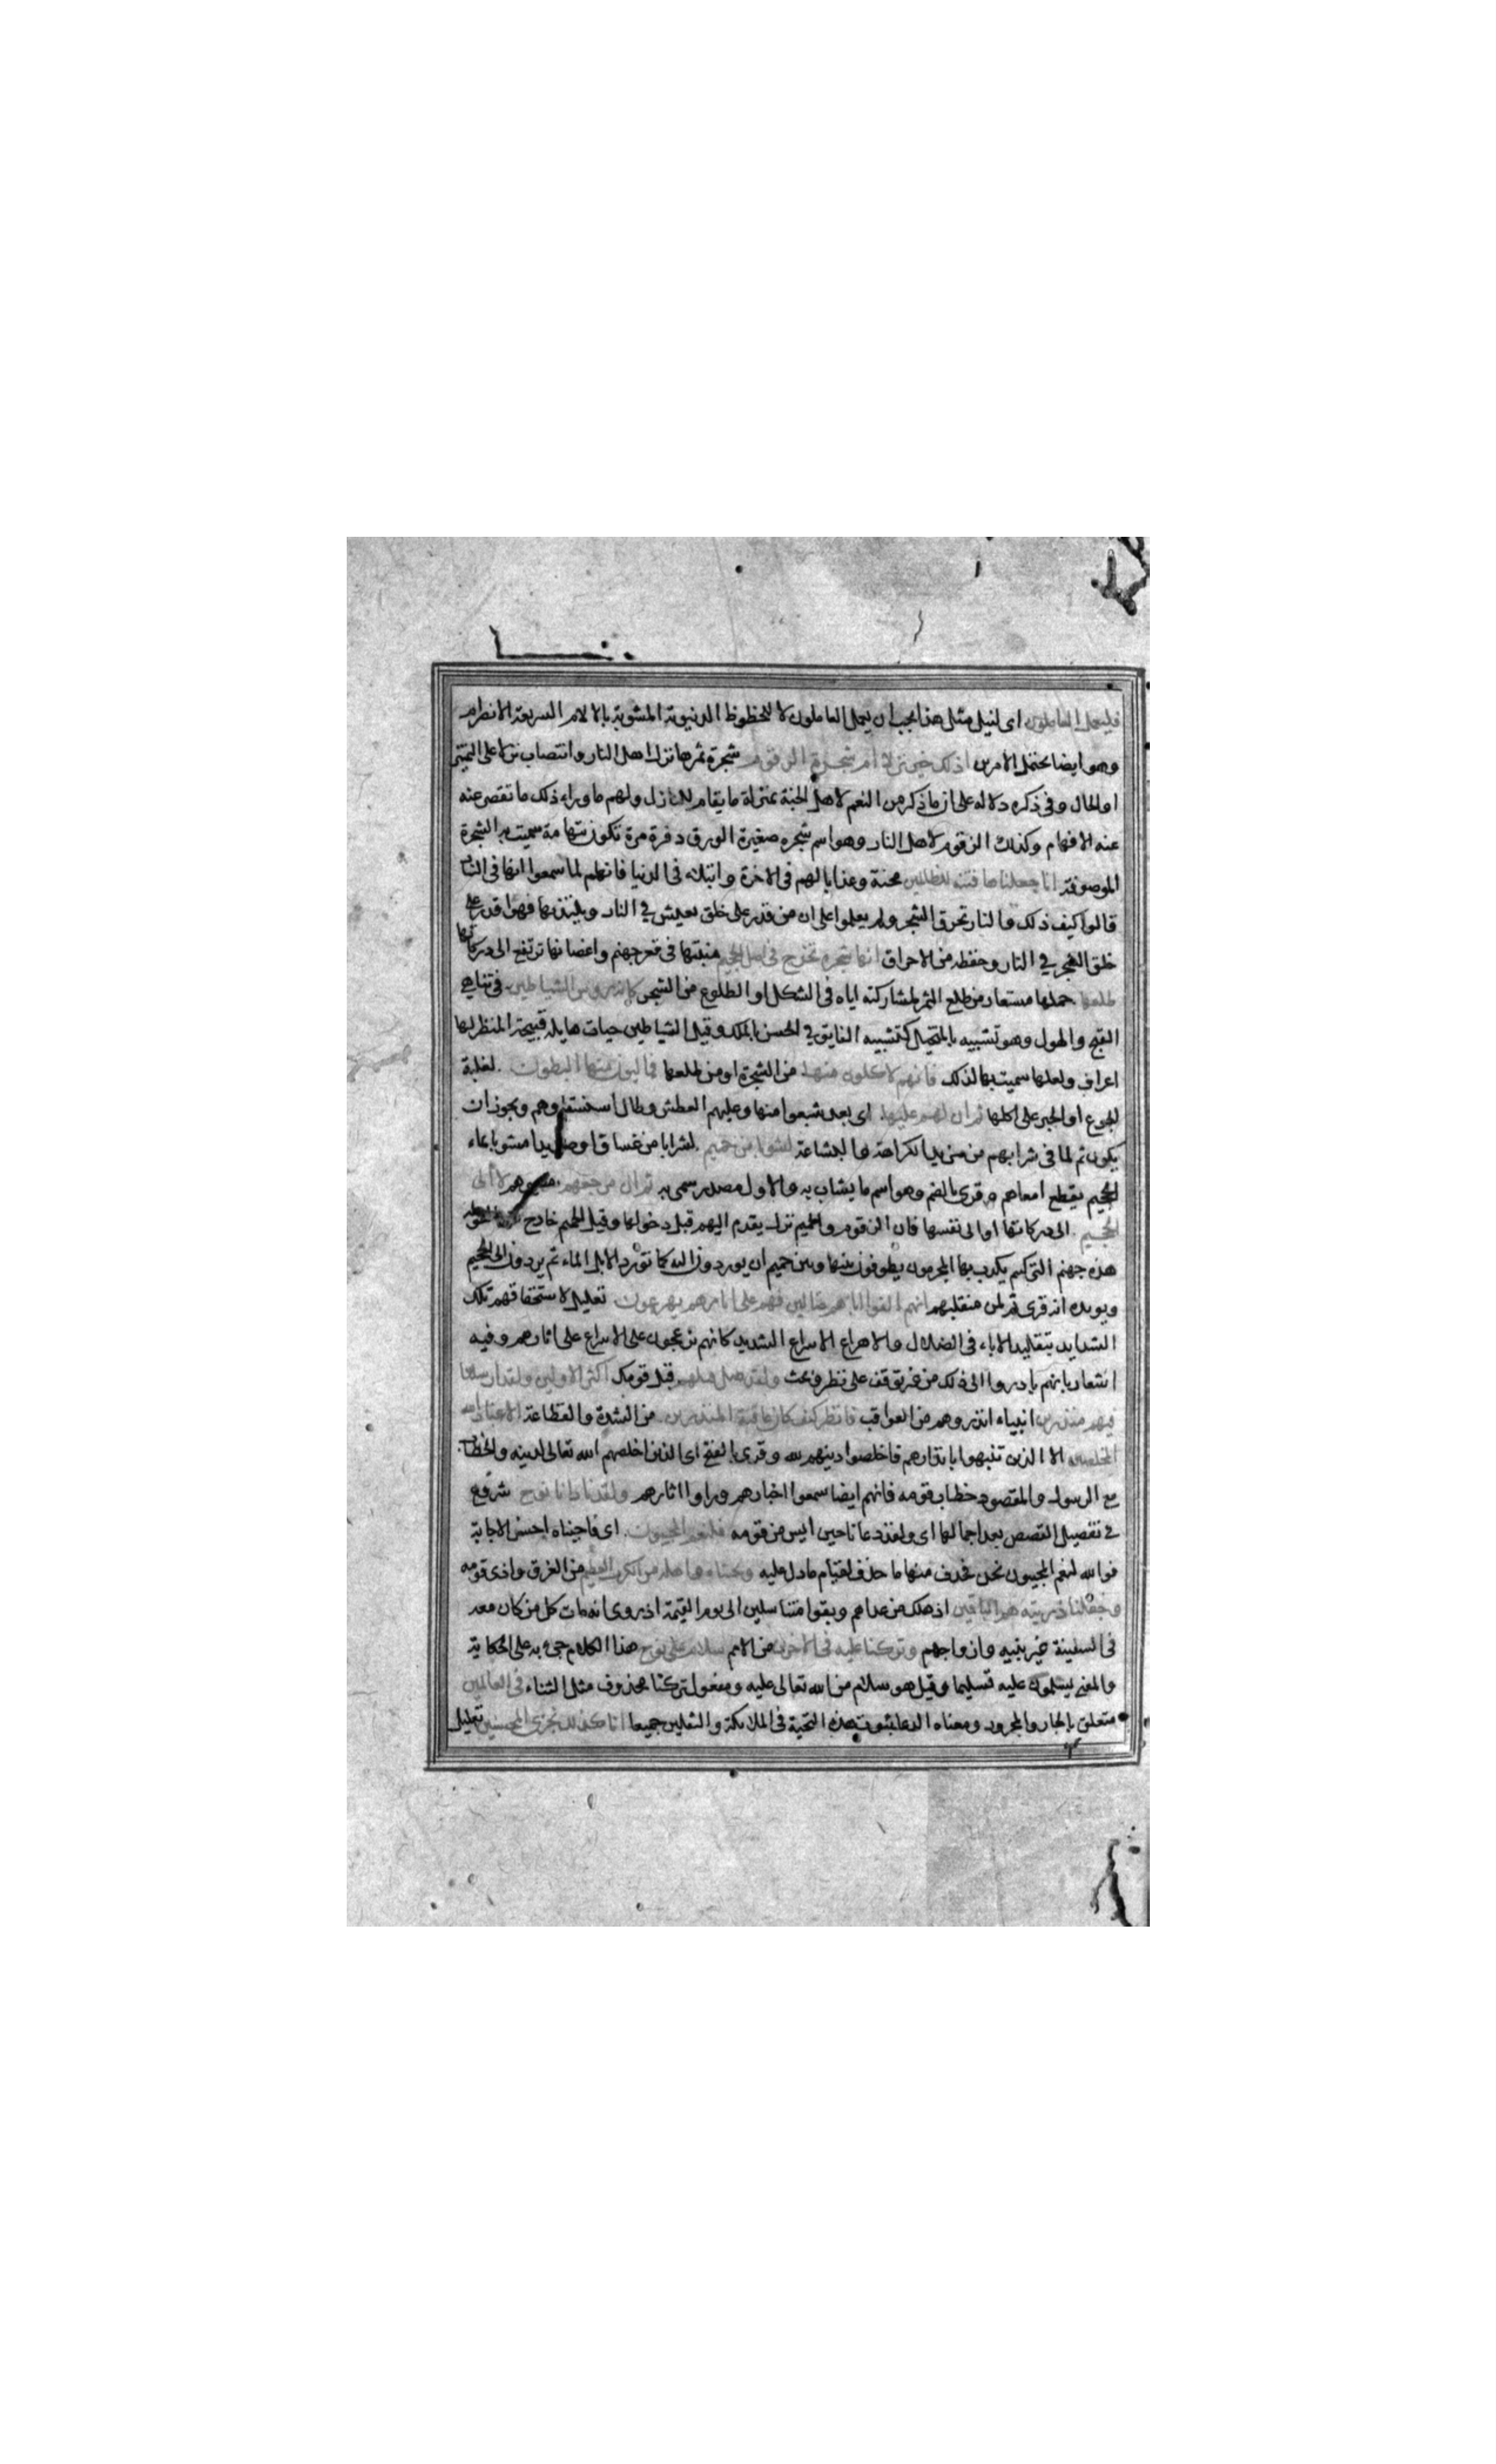 فليعمل العاملون اى لنيل مثل هذا يجب ان يعمل العاملون لا للحظوظ الدنيوية المشوبة بالالام السريعة الانصرام
وهو ايضا يحتمل الامرين اذلك خير نزلا ام شجرة الزقوم شجرة ثمرها نزل اهل النار وانتصاب نزلا على التميز
او الحال وفى ذكره دلالة على ان ما ذكر من النعم لاهل الجنة بمنزلة ما يقام للنازل ولهم ما وراء ذلك ما تقصر عنه
عنه الافهام وكذلك الزقوم لاهل النار وهو اسم شجره صغيرة الورق دفرة مرة تكون بتهامة سميت به الشجرة
الموصوفة انا جعلناها فتنة للظالمين محنة وعذابا لهم فى الاخرة وابتلاء فى الدنيا فانهم لما سمعوا انها فى النار
قالوا كيف ذلك والنار تحرق الشجر ولم يعلموا على ان من قدر على خلق يعيش في النار ويلتذ بها فهو اقدر على
خلق الشجر في النار وحفظه من الاحراق انها شجرة تخرج فى اصل الجحيم منبتها فى قعر جهنم واغصانها ترتفع الى دركاتها
طلعها حملها مستعار من طلع الثمر لمشاركته اياه فى الشكل او الطلوع من الشجر كانه رؤس الشياطين فى تناهى
القبح والهول وهو تشبيه بالمتخيل كتشبيه الفايق في الحسن بالملك وقيل الشياطين حيات هايلة قبيحة المنظر لها
اعراف ولعلها سميت بها لذلك فانهم لاكلون منها من الشجرة او من طلعها فمالؤن منها البطون لغلبة
الجوع او الجبر على اكلها ثم ان لهم عليها اى بعد شبعوا منها وغلبهم العطش وطال استسقاؤهم ويجوز ان
يكون ثم لما فى شرابهم من مزيد الكراهة والبشاعة لشوبا من حميم لشرابا من غساق او صديدا مشوبا بماء
الحميم يقطع امعاهم وقرى بالضم وهو اسم ما يشاب به والاول مصدر سمى به ثم ان مرجعهم مصيرهم لالى
الجحيم الى دركاتها او الى نفسها فان الزقوم والحميم نزل يقدم اليهم قبل دخولها وقيل الحميم خارج
هذه جهنم التى كم يكذب بها المجرمون يطوفون بينها وبين حميم ان يوردون اليه كما تورد الابل الماء ثم يردون الى الجحيم
ويويده انه قرى ثم ان منقلبهم انهم الفوا اباهم ضالين فهم على اثارهم يهرعون تعليل لاستحقاقهم تلك
الشدايد بتقليد الاباء فى الضلال والاهراع الاسراع الشديد كانهم يزعجون على الاسراع على اثارهم وفيه
اشعار بانهم بادروا الى ذلك من غير توقف على نظر وبحث ولقد ضل قبلهم قبل قومك اكثر الاولين ولقد ارسلنا
فيهم منذرين انبياء انذروهم من العواقب فانظر كيف كان عاقبة المنذرين من الشدة والفظاعة الا عباد الله
المخلصين الا الذين تنبهوا بانذارهم فاخلصوا دينهم لله وقرى بالفتح اى الذين اخلصهم الله تعالى لدينه والخطاب
مع الرسول والمقصود خطاب قومه فانهم ايضا سمعوا اخبارهم وراوا اثارهم ولقد نادانا نوح شروع
في تفصيل القصص بعد اجمالها اى ولقد دعانا حين ايس من قومه فلنعم المجيبون اى فاجبناه احسن الاجابة
فوالله لنعم المجيبون نحن فحذف منها ما حذف لقيام ما دل عليه ونجيناه واهله من الكرب العظيم من الغرق واذى قومه
وجعلنا ذريته هم الباقين اذ هلك من عداهم وبقوا متناسلين الى يوم القيمة اذ روى انه مات كل من كان معه
فى السفينة غير بنيه وازواجهم وتركنا عليه فى الاخرين من الامم سلام على نوح هذا الكلام جئ به على الحكاية
والمعنى يسلمون عليه تسليما وقيل هو سلام من الله تعالى عليه ومفعول تركنا محذوف مثل الثناء فى العالمين
متعلق بالجار والمجرور ومعناه الدعا بثبوت هذه التحية فى الملائكة والثقلين جميعا انا كذلك نجزى المحسنين تعليل